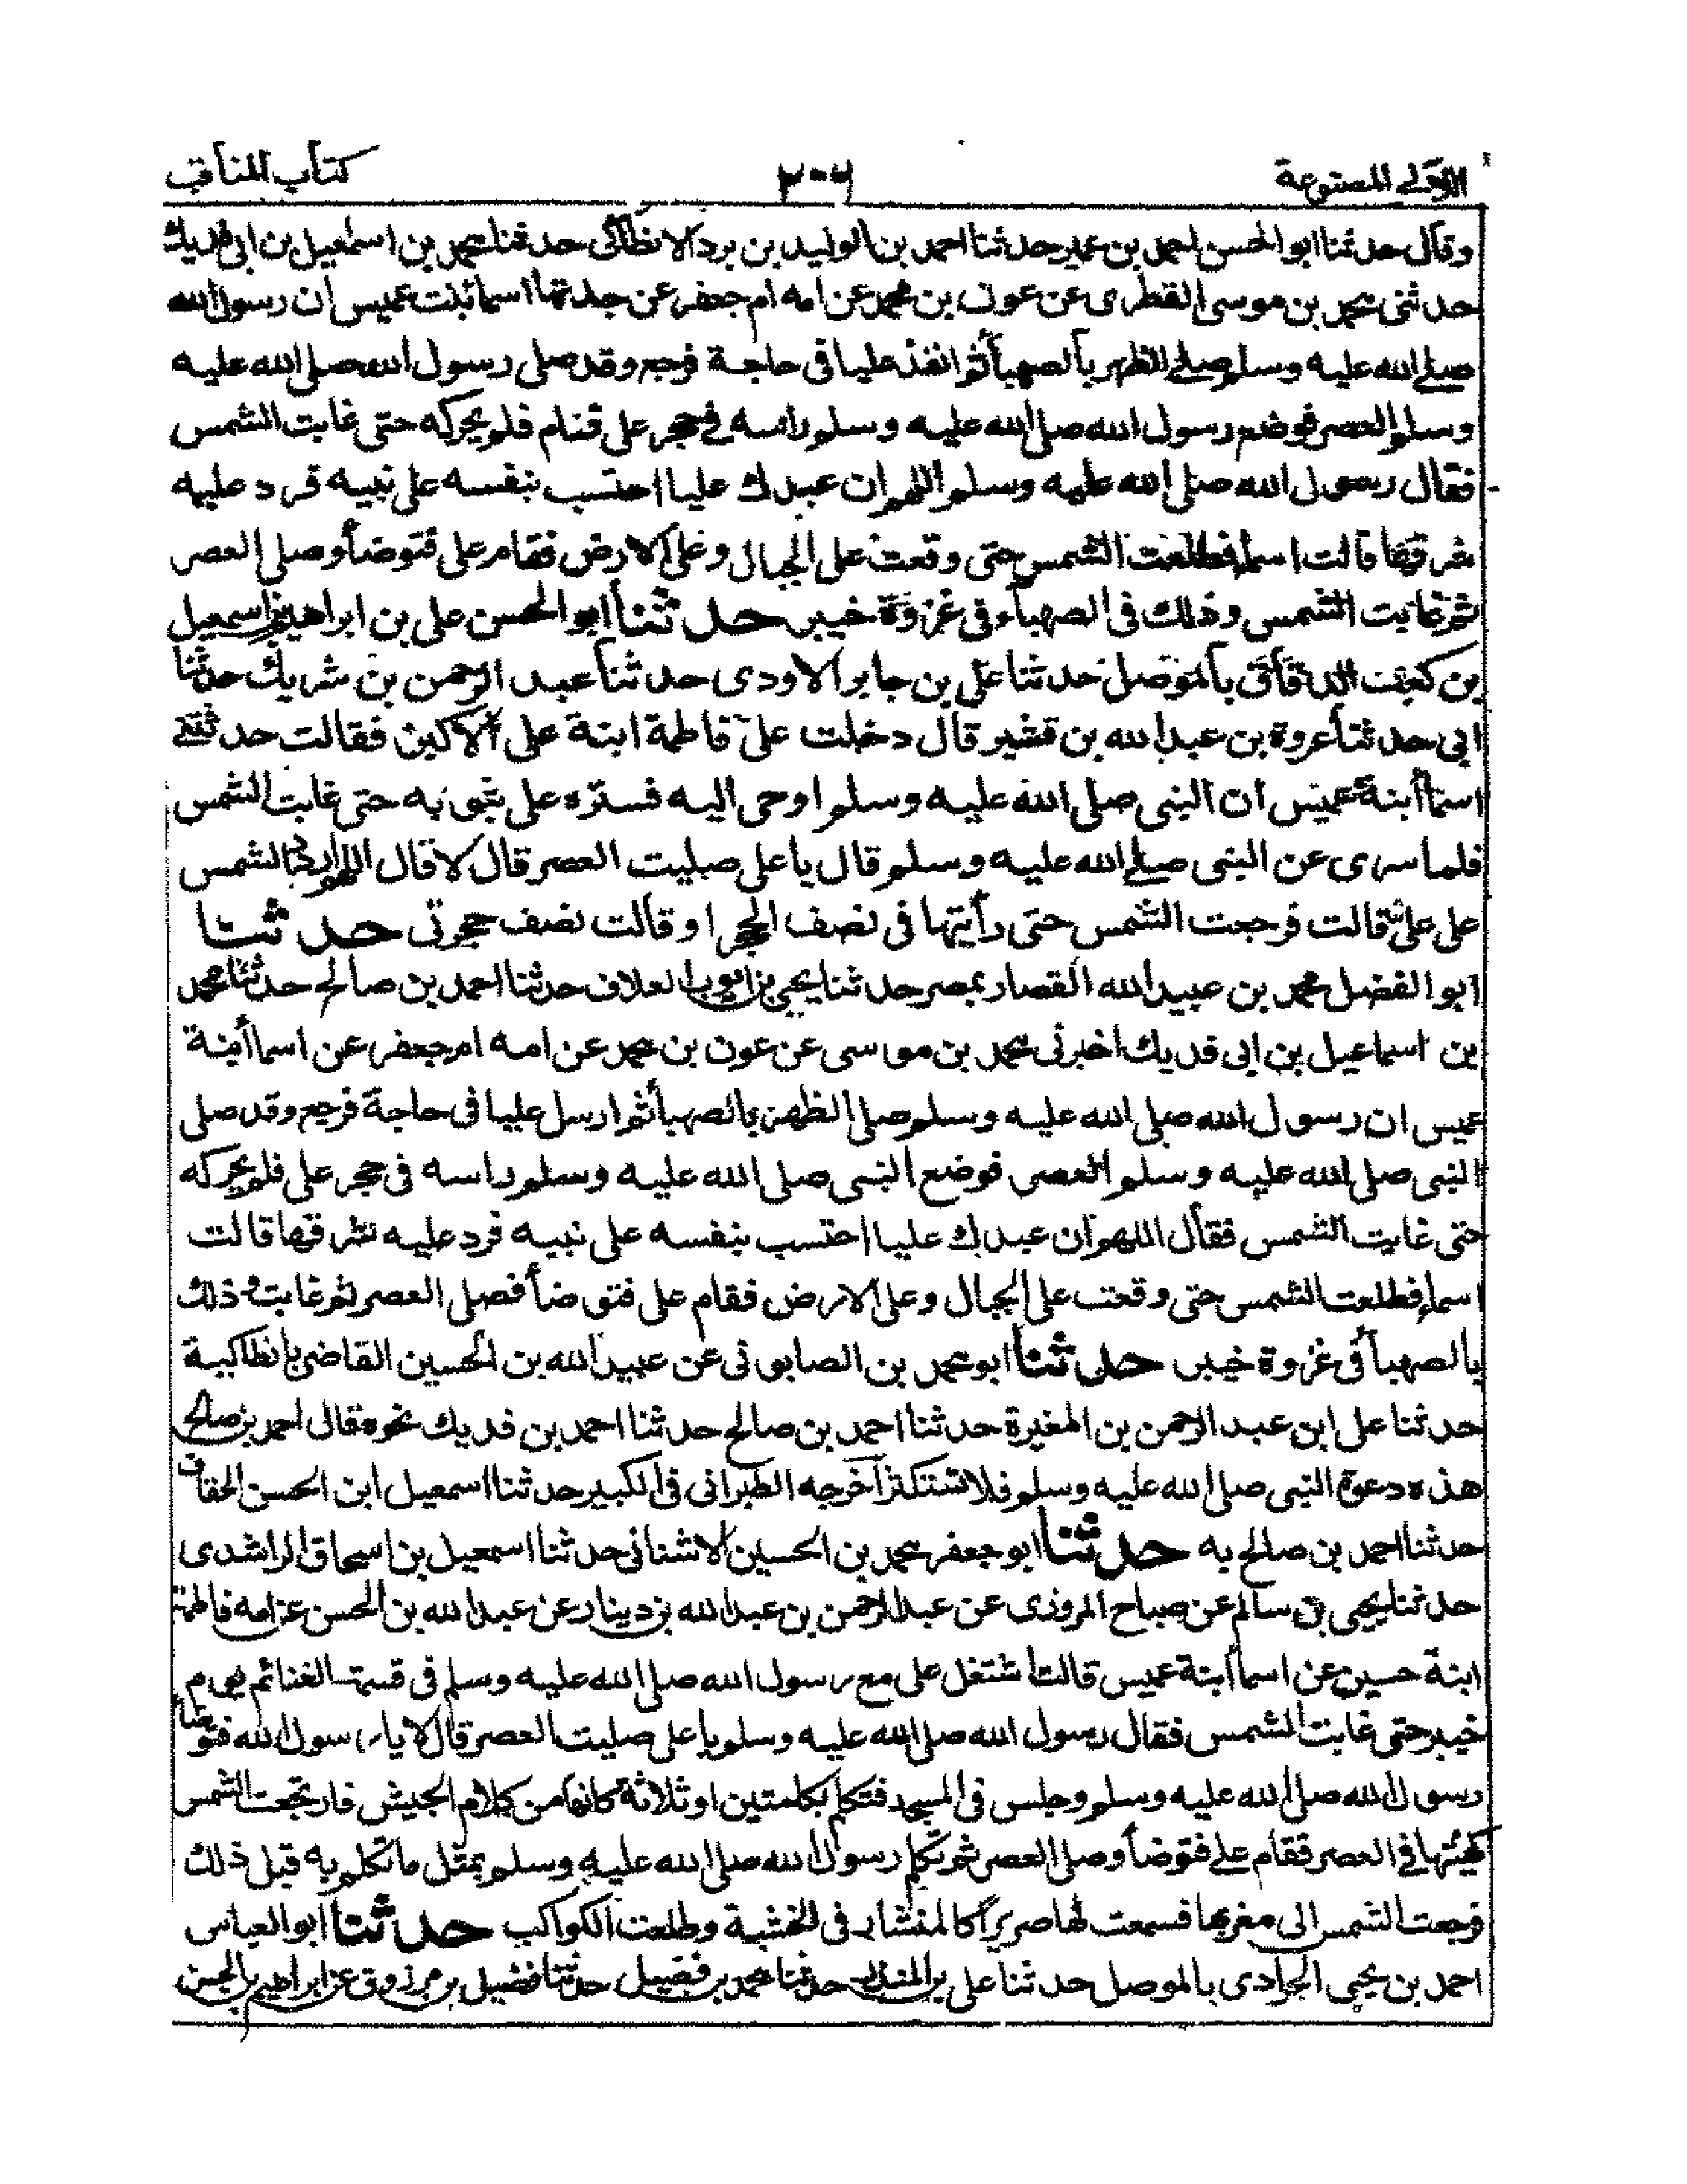 اللآلى المصنوعة ٢٠٦ كتاب المناقب
وقال حدثنا ابو الحسن احمد بن عمير حدثنا احمد بن الوليد بن برد الانطاكى حدثنا محمد بن اسماعيل بن ابى فديك
حدثنى محمد بن موسى القطرى عن عون بن محمد عن امه ام جعفر عن جدتها اسما بنت عميس ان رسول الله
صلى الله عليه وسلم صلى الظهر بالصهبا ثم انفذ عليا فى حاجة فرجع وقد صلى رسول الله صلى الله عليه
وسلم العصر فوضع رسول الله صلى الله عليه وسلم راسه فى حجر على فنام فلم يحركه حتى غابت الشمس
فقال رسول الله صلى الله عليه وسلم اللهم ان عبدك عليا احتسب بنفسه على نبيه فرد عليه
شرقها قالت اسما فطلعت الشمس حتى وقعت على الجبال وعلى الارض فقام على فتوضأ وصلى العصر
ثم غابت الشمس وذلك فى الصهباء فى غزوة خيبر حدثنا ابو الحسن على بن ابراهيم بن اسمعيل
بن كعيت الدقاق بالموصل حدثنا على بن جابر الاودى حدثنا عبد الرحمن بن شريك حدثنا
ابى حدثنا عروة بن عبد الله بن قشير قال دخلت على فاطمة ابنة على الاكبر فقالت حدثتنى
اسما أبنة عميس ان النبى صلى الله عليه وسلم اوحى اليه فستره على بثوبه حتى غابت الشمس
فلما سرى عن النبى صلى الله عليه وسلم قال يا على صليت العصر قال لا قال اللهم اردد الشمس
على على قالت فرجعت الشمس حتى رأيتها فى نصف الحجر او قالت نصف حجرتى حدثنا
ابو الفضل محمد بن عبيد الله القصار بمصر حدثنا يحيى بن ايوب العلاف حدثنا احمد بن صالح حدثنا محمد
بن اسماعيل بن ابى فديك اخبرنى محمد بن موسى عن عون بن محمد عن امه ام جعفر عن اسما أبنة
عميس ان رسول الله صلى الله عليه وسلم صلى الظهر بالصهبا ثم ارسل عليا فى حاجة فرجع وقد صلى
النبى صلى الله عليه وسلم العصر فوضع النبى صلى الله عليه وسلم راسه فى حجر على فلم يحركه
حتى غابت الشمس فقال اللهم ان عبدك عليا احتسب بنفسه على نبيه فرد عليه شرقها قالت
اسماء فطلعت الشمس حتى وقعت على الجبال وعلى الارض فقام على فتوضأ فصلى العصر ثم غابت وذلك
بالصهبا فى غزوة خيبر حدثنا ابو محمد بن الصابونى عن عبيد الله بن الحسين القاضى بانطاكية
حدثنا على ابن عبد الرحمن بن المغيرة حدثنا احمد بن صالح حدثنا احمد بن فديك نحوه قال احمد بن صالح
هذه دعوة النبى صلى الله عليه وسلم فلا تستكثر أخرجه الطبرانى فى الكبير حدثنا اسمعيل ابن الحسن الخفاف
حدثنا احمد بن صالح به حدثنا ابو جعفر محمد بن الحسين الاشنانى حدثنا اسمعيل بن اسحاق الراشدى
حدثنا يحيى بن سالم عن صباح المروزى عن عبد الرحمن بن عبد الله بن دينار عن عبد الله بن الحسن عن امه فاطمة
ابنة حسين عن اسما أبنة عميس قالت اشتغل على مع رسول الله صلى الله عليه وسلم فى قسمة الغنائم يوم
خيبر حتى غابت الشمس فقال رسول الله صلى الله عليه وسلم يا على صليت العصر قال لا يا رسول الله فتوضأ
رسول الله صلى الله عليه وسلم وجلس فى المسجد فتكلم بكلمتين او ثلاثة كانها من كلام الحبيش فارتجعت الشمس
كهيئتها فى العصر فقام على فتوضأ وصلى العصر ثم تكلم رسول الله صلى الله عليه وسلم بمثل ما تكلم به قبل ذلك
فرجعت الشمس الى مغربها فسمعت لها صريرا كالمنشار فى الخشبة وطلعت الكواكب حدثنا ابو العباس
احمد بن يحيى الجرادى بالموصل حدثنا على بن المنذر حدثنا محمد بن فضيل حدثنا فضيل بن مرزوق عن ابراهيم بن الحسن